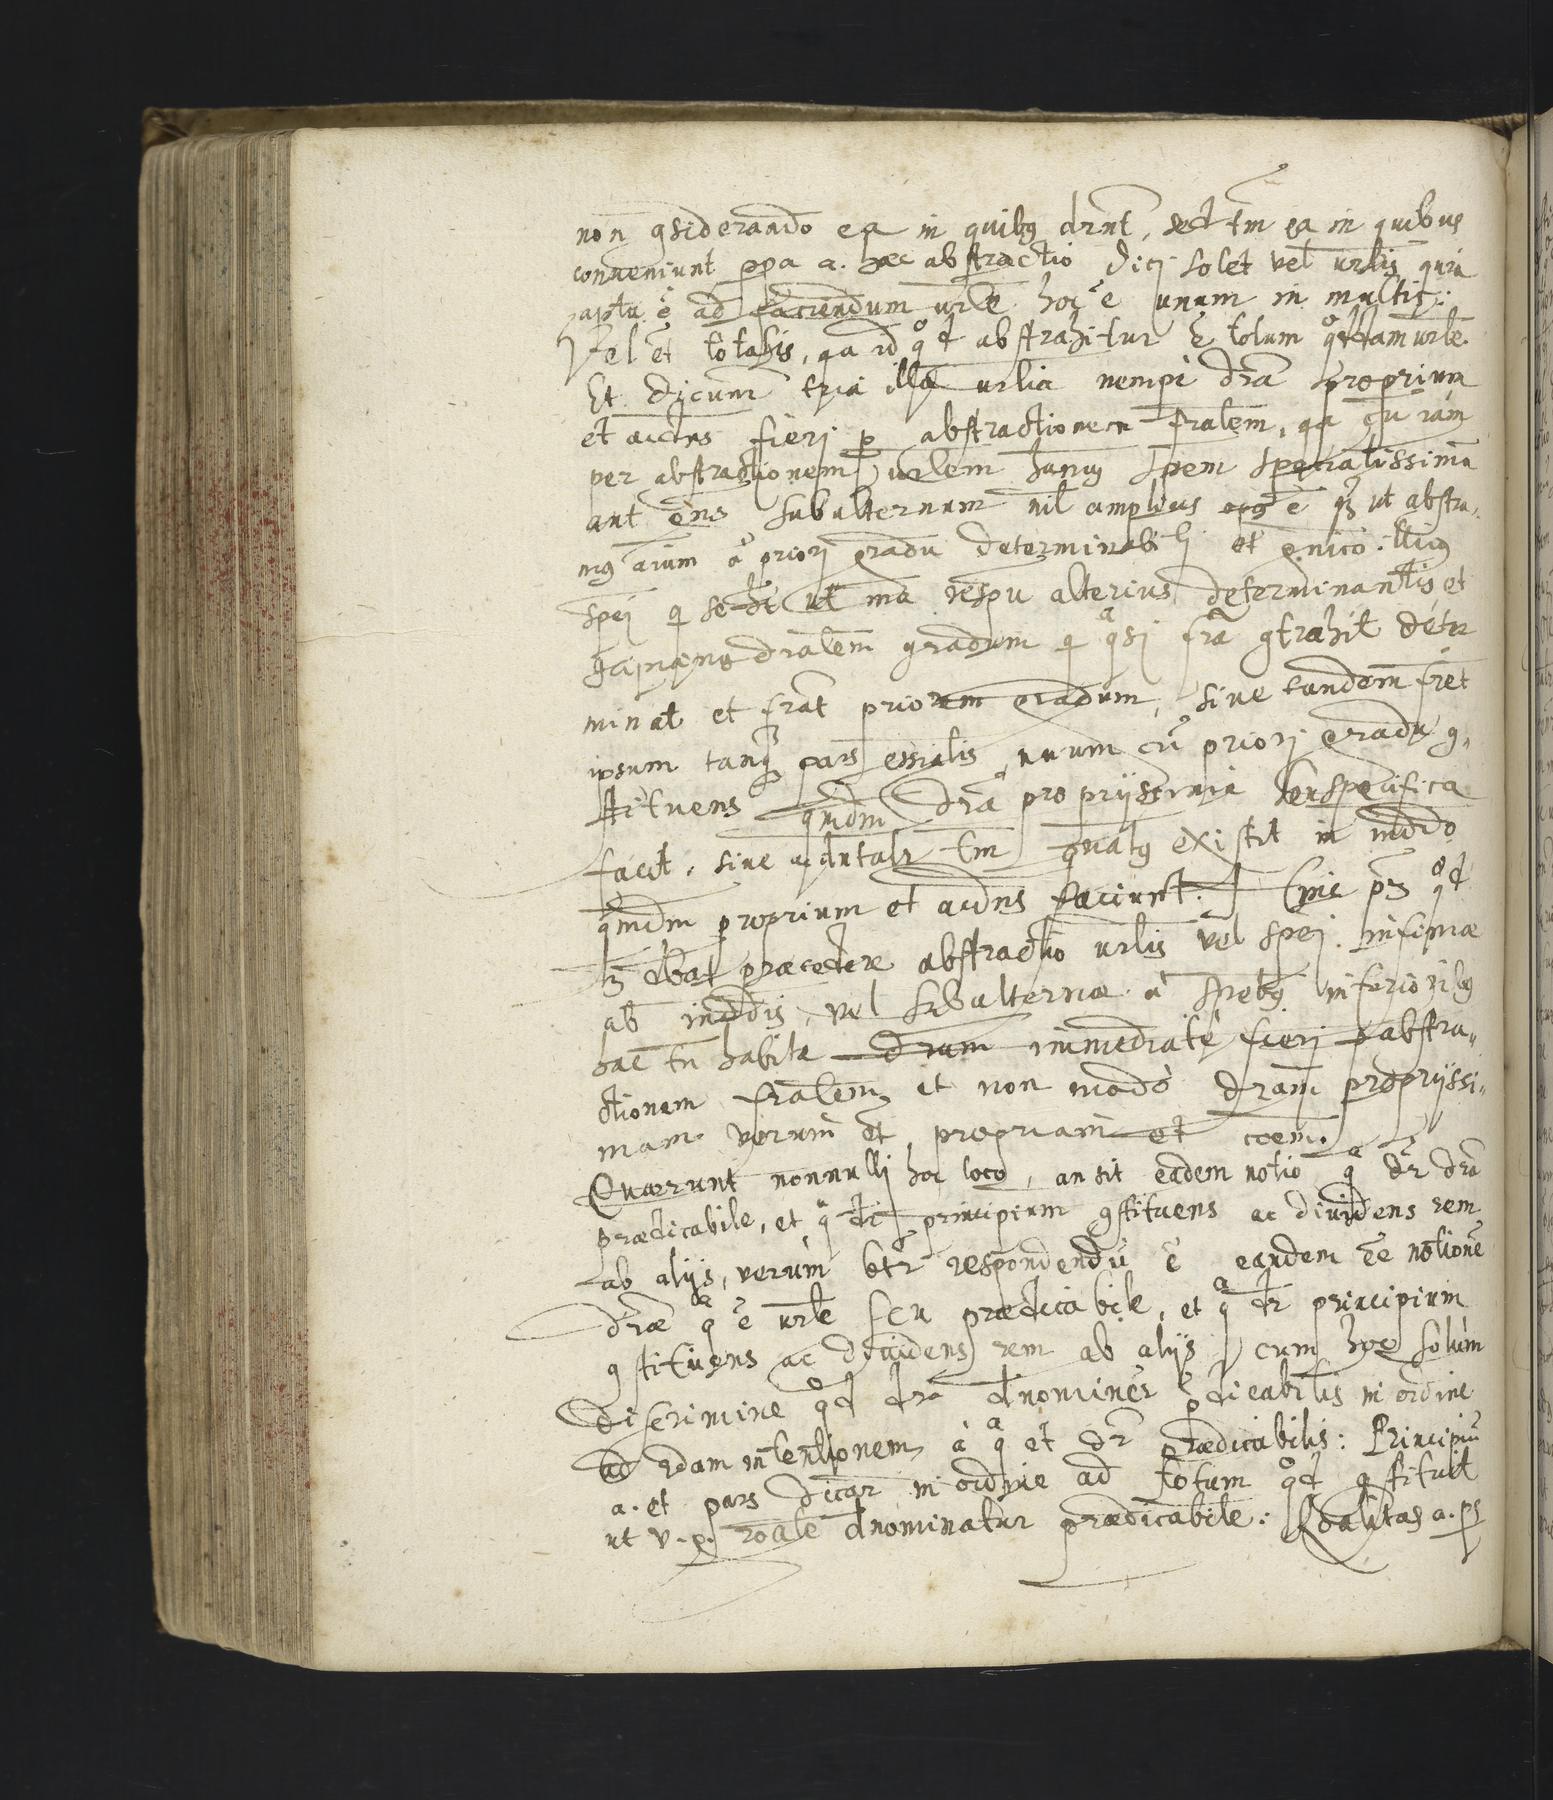 non gsiderando ea in quibg drnt, sed tm ea in quibus
conueniunt ppa a. hæc abstractio dici solet vel urlis quia
apta ē ad faciendum urle hoc ē unum in multis:
Vel et totalis, qa id qd abstrahitur ē totum qddam urle.
Et dicunt tria illa urlia nempè dram proprium
et accins fieri p abstractionem fralem, qa cu iam
per abstractionem urlem hanc spem specialissima
aut ens subalternum nil amplius opg ē qz ut abstra-
mg aium a priori gradu determinabili et gnico illig
spei qi se ht ut ma respu alterius determinantis et
dralem gradum qi qsi fra gtrahit deter
minat et frat priorem gradum, siue tandem fret
ipsum tanqz pars essialis unum cu priori gradu g-
stituens qmdm dra propriissima seu specifica
facit, siue accintalr tm existit in
qmdm proprium et accins faciunt. Sine pz qd
præcedere abstractio urlis vel spei infimæ
ab inddis, vel subalternæ a spebg inferioribg
hac tn habita dram immediatè fieri p abstra-
ctionem fralem, et non modò dram propriissi-
mam verum et propriam et coem.
Quærunt nonnulli hoc loco, an sit eadem notio qa dr dra
prædicabile, et qa dr principium gstituens ac diuidens rem
ab alijs, verum btr respondendū ē eandem ēē notionē
dræ qa ē urle seu prædicabile, et qa dr principium
gstituens ac diuidens rem ab alijs cum hoc solùm
discrimine qd dra dnominēr pdicabilis in ordine
ad 2dam intentionem, à qa et dr prædicabilis: Principiū
a. et pars dicar in ordine ad totum qd gstituit
ut v.g. roale dnominatur prædicabile: Roalitas a. ps